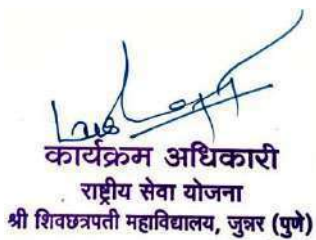 कार्यक्रम अधिकारी
राष्ट्रीय सेवा योजना
श्री शिवछत्रपती महाविद्यालय, जुन्नर (पुणे)